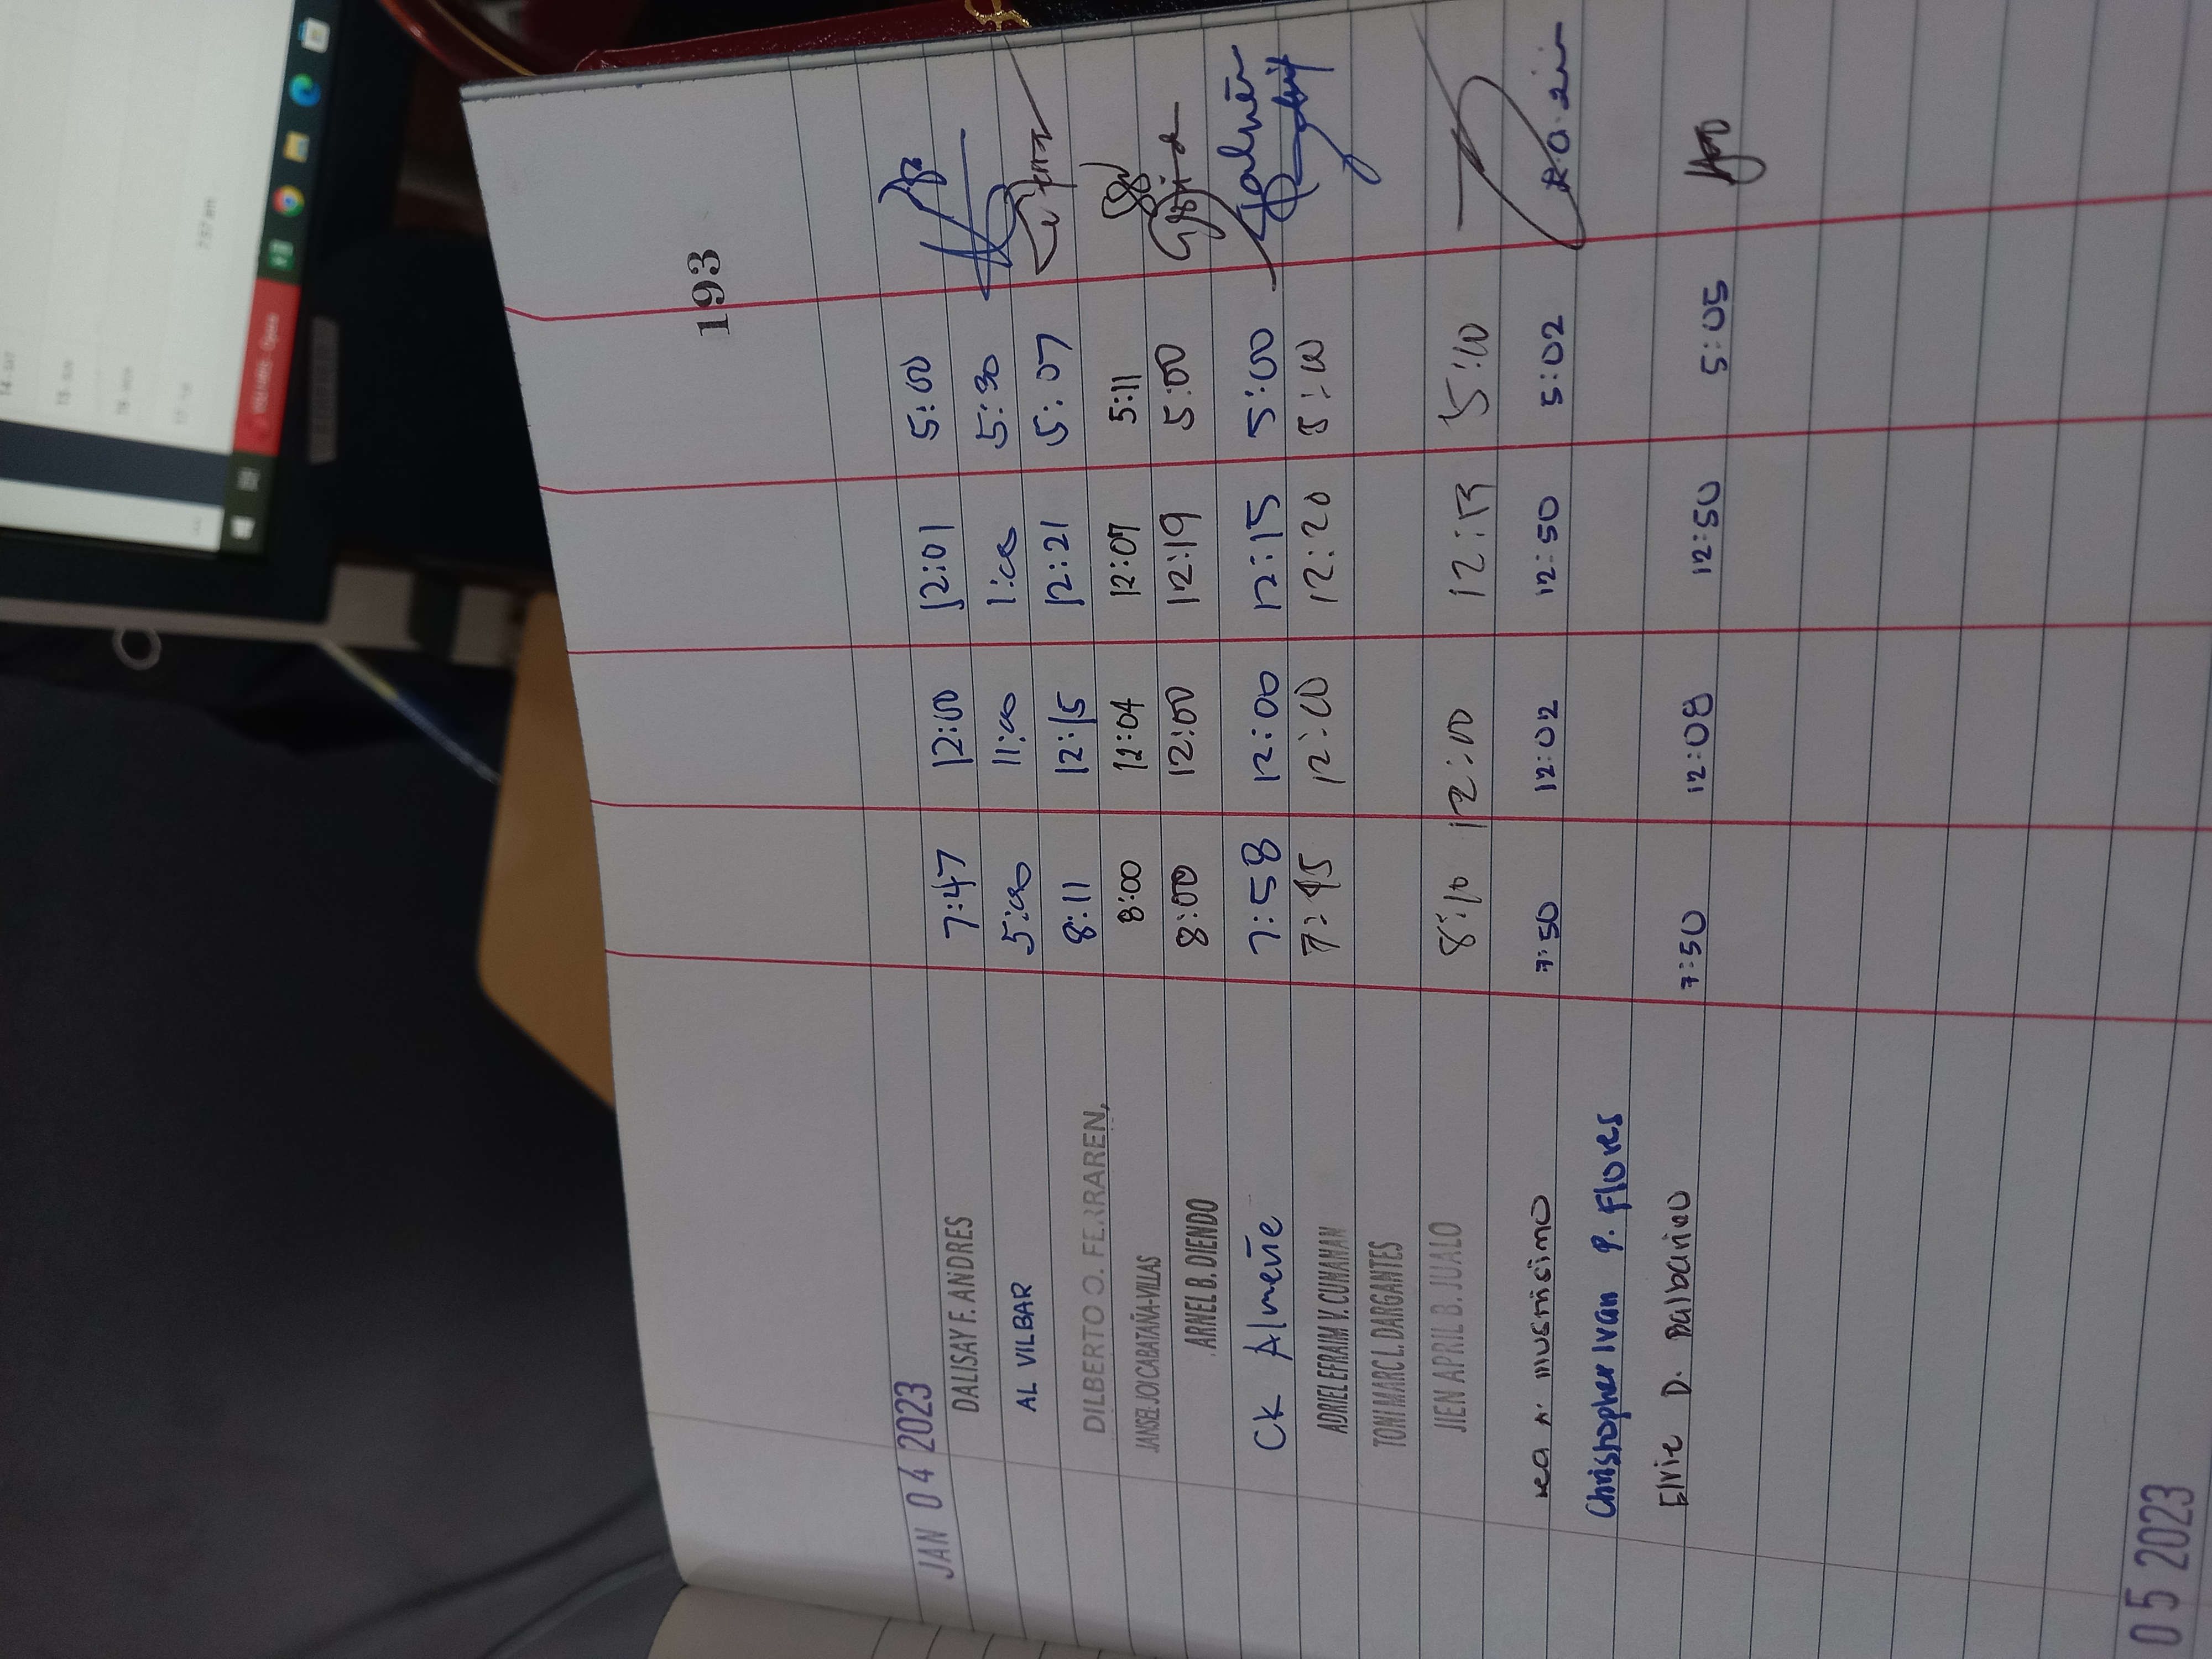 193
JAN 04 2023
DALISAY F. ANDRES 7:47 12:00 12:01 5:00
AL VILBAR 5:00 11:00 1:00 5:30
DILBERTO O. FERRAREN, 8:11 12:15 12:21 5:07
JANSEL JOI CABATAÑA-VILLAS 8:00 12:04 12:07 5:11
ARNEL B. DIENDO 8:00 12:00 12:19 5:00
CK Almeñe 7:58 12:00 12:15 5:00
ADRIEL EFRAIM V. CUNANAN 7:45 12:00 12:20 5:00
TONI MARC L. DARGANTES
JIEN APRIL B. JUALO 8:10 12:00 12:13 5:10
Rea A. Illusmisimo 7:50 12:02 12:50 5:02
Christopher Ivan P. Flores
Elvie D. Balbarino 7:50 12:08 12:50 5:05
05 2023